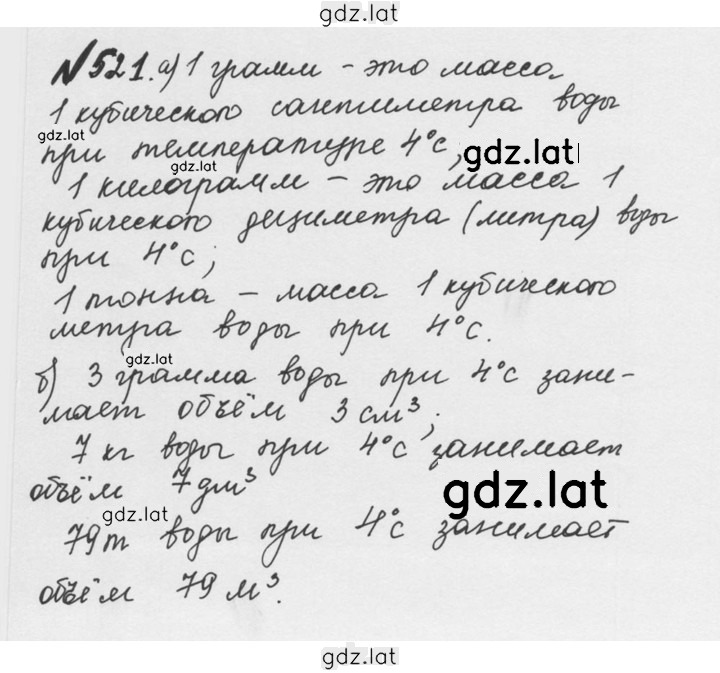 gdz.lat
№521. а) 1 грамм – это масса
1 кубического сантиметра воды
gdz.lat
при температуре 4°С,
gdz.lat
1 килограмм – это масса 1
gdz.lat
кубического дециметра (литра) воды
при 4°С;
1 тонна – масса 1 кубического
метра воды при 4°С.
gdz.lat
б) 3 грамма воды при 4°С зани-
мает объём 3 см³;
7 кг воды при 4°С занимает
объём 7 дм³
gdz.lat
gdz.lat
79 т воды при 4°С занимает
объём 79 м³.
gdz.lat